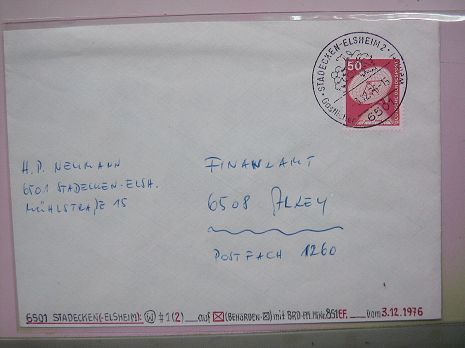 STADECKEN-ELSHEIM 2
50
6501
H.P. NEUMANN
6501 STADECKEN-ELSH.
MÜHLSTRAßE 15
FINANZAMT
6508 ALZEY
POSTFACH 1260
6501 STADECKEN(-ELSHEIM): W #1(2) auf (BEHÖRDEN-) mit BRD-FM. MiNr. 851EF. vom 3.12.1976